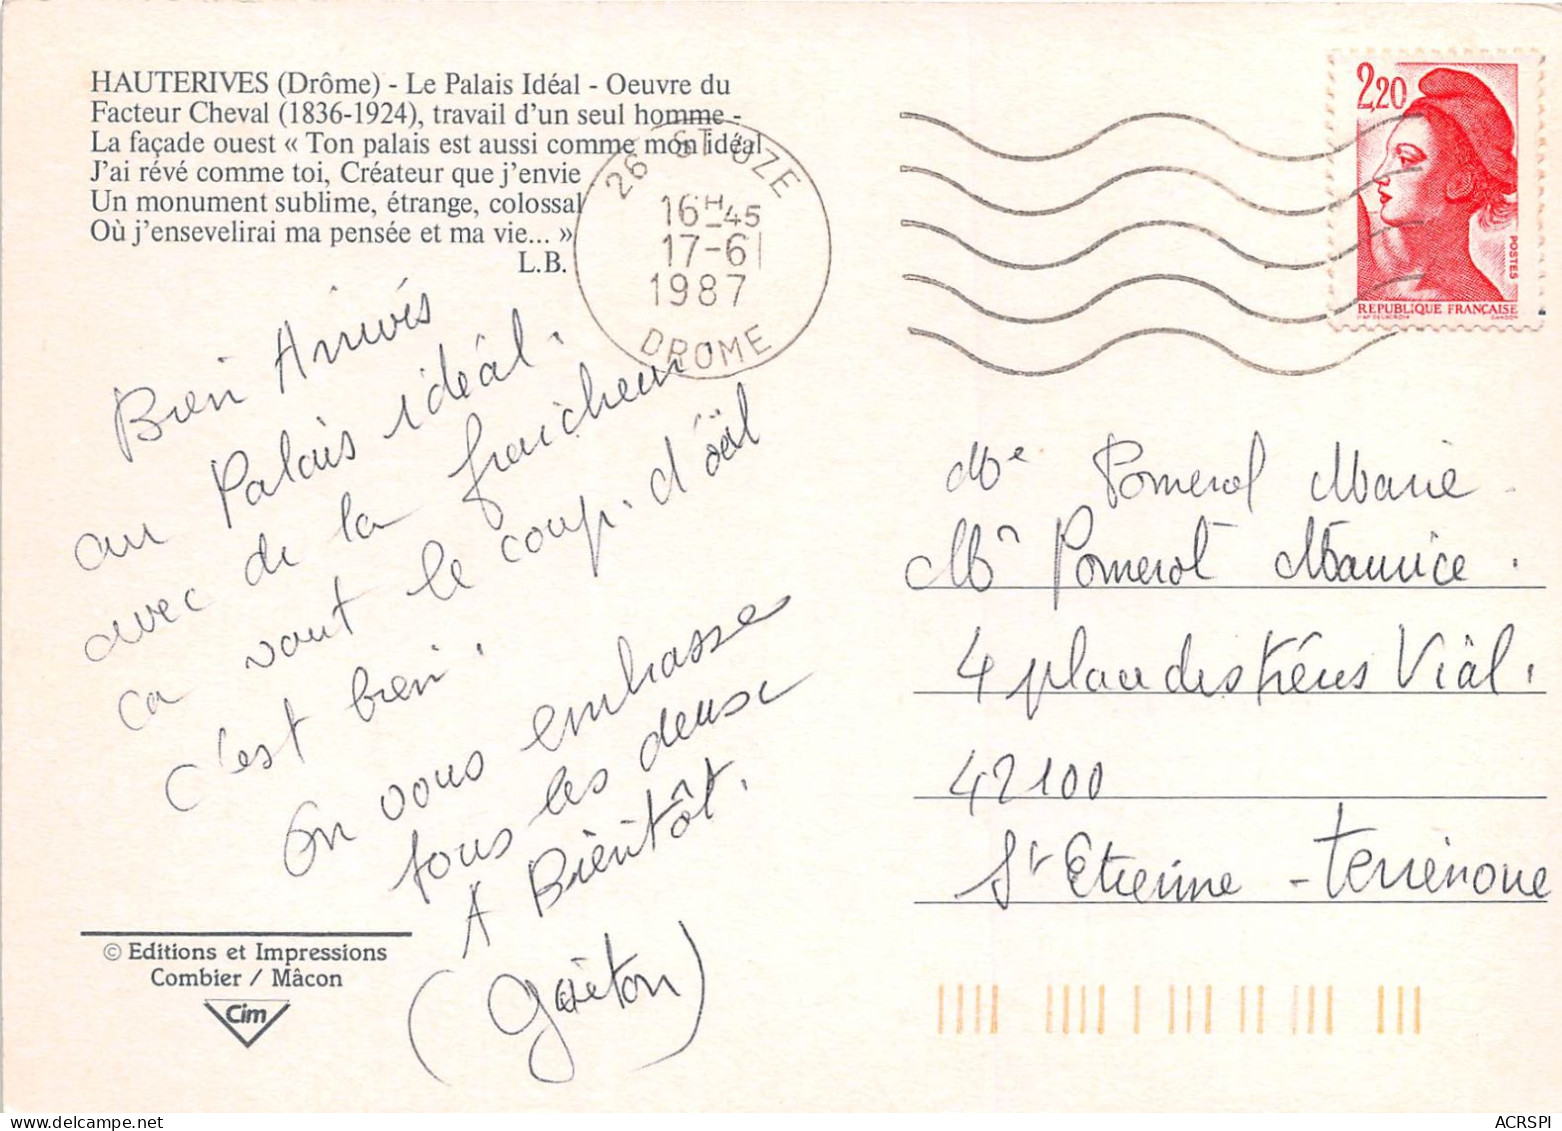 HAUTERIVES (Drôme) - Le Palais Idéal - Oeuvre du
Facteur Cheval (1836-1924), travail d'un seul homme -
La façade ouest « Ton palais est aussi comme mon idéal
J'ai révé comme toi, Créateur que j'envie
Un monument sublime, étrange, colossal
Où j'ensevelirai ma pensée et ma vie... »
L.B.
26 ST UZE
16H-45
17-6
1987
DROME
2,20
POSTES
REPUBLIQUE FRANÇAISE
Bien Arrivés
au Palais idéal.
avec de la fraicheur
ca vaut le coup. d'oäl
c'est bien.
On vous embrasse
tous les deux
A Bientôt.
(gaëton)
Me Pomerol Marie
Mr Pomerol Maurice.
4 place des frérs Viàl.
42100
St Etienne - Terrenoue
© Editions et Impressions
Combier / Mâcon
Cim
ACRSPI